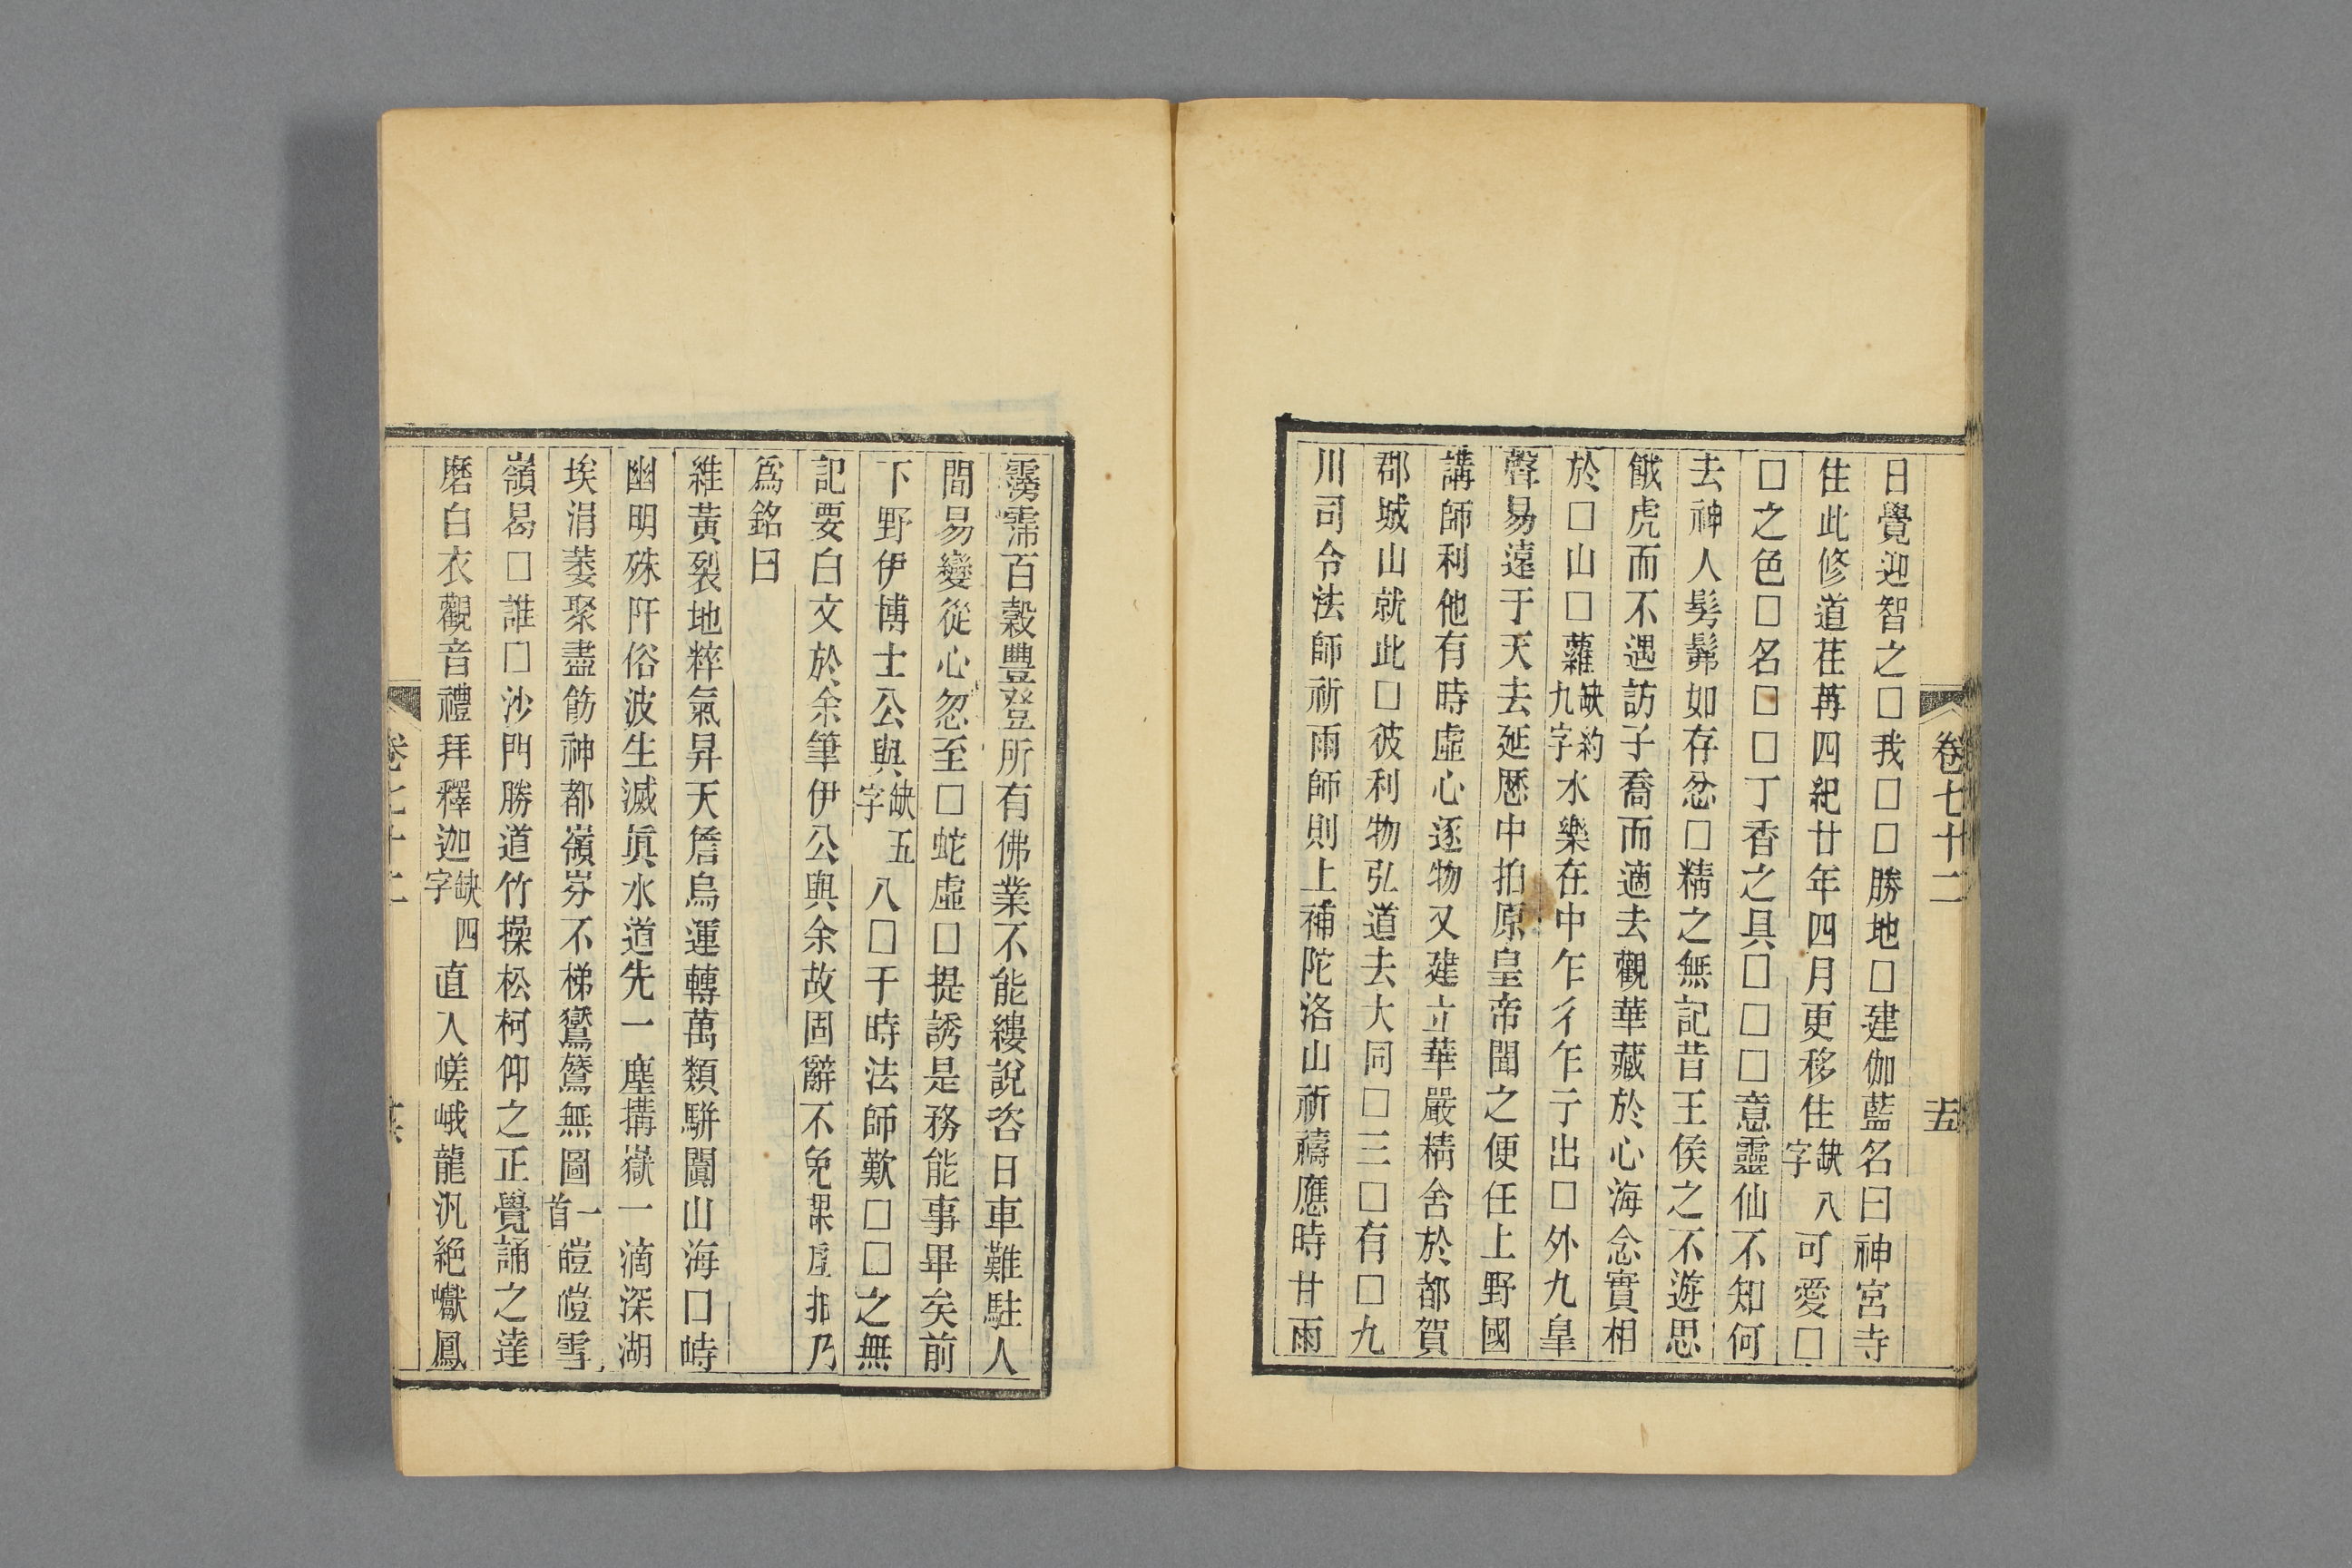 卷七十二
五
日覺迎智之□我□□勝地□建伽藍名曰神宮寺
住此修道荏苒四紀廿年四月更移住缺八字可愛□
□之色□名□□丁香之具□□□意靈仙不知何
去神人髣髴如存忿□精之無記昔王侯之不遊思
餓虎而不遇訪子喬而適去觀華藏於心海念實相
於□山□蘿缺約九字水樂在中乍彳乍亍出□外九皐
聲易遠于天去延歷中拍原皇帝聞之便任上野國
講師利他有時虛心逐物又建立華嚴精舍於都賀
郡城山就此□彼利物弘道去大同□三□有□九
川司令法師祈雨師則上補陀洛山祈禱應時甘雨
霶霈百穀豐登所有佛業不能縷說咨日車難駐人
間易變從心忽至□蛇虛□提誘是務能事畢矣前
下野伊博士公與缺五字八□于時法師歎□□之無
記要白文於余筆伊公與余故固辭不免課虛抽乃
爲銘曰
維黃裂地粹氣昇天詹烏運轉萬類駢闐山海□峙
幽明殊阡俗波生滅眞水道先一塵搆嶽一滴深湖
埃涓萎聚盡餝神都嶺岑不梯鸑鷟無圖一首皚皚雪
嶺曷□誰□沙門勝道竹操松柯仰之正覺誦之達
磨白衣觀音禮拜釋迦缺四字直入嵯峨龍汎絕巘鳳
卷七十二